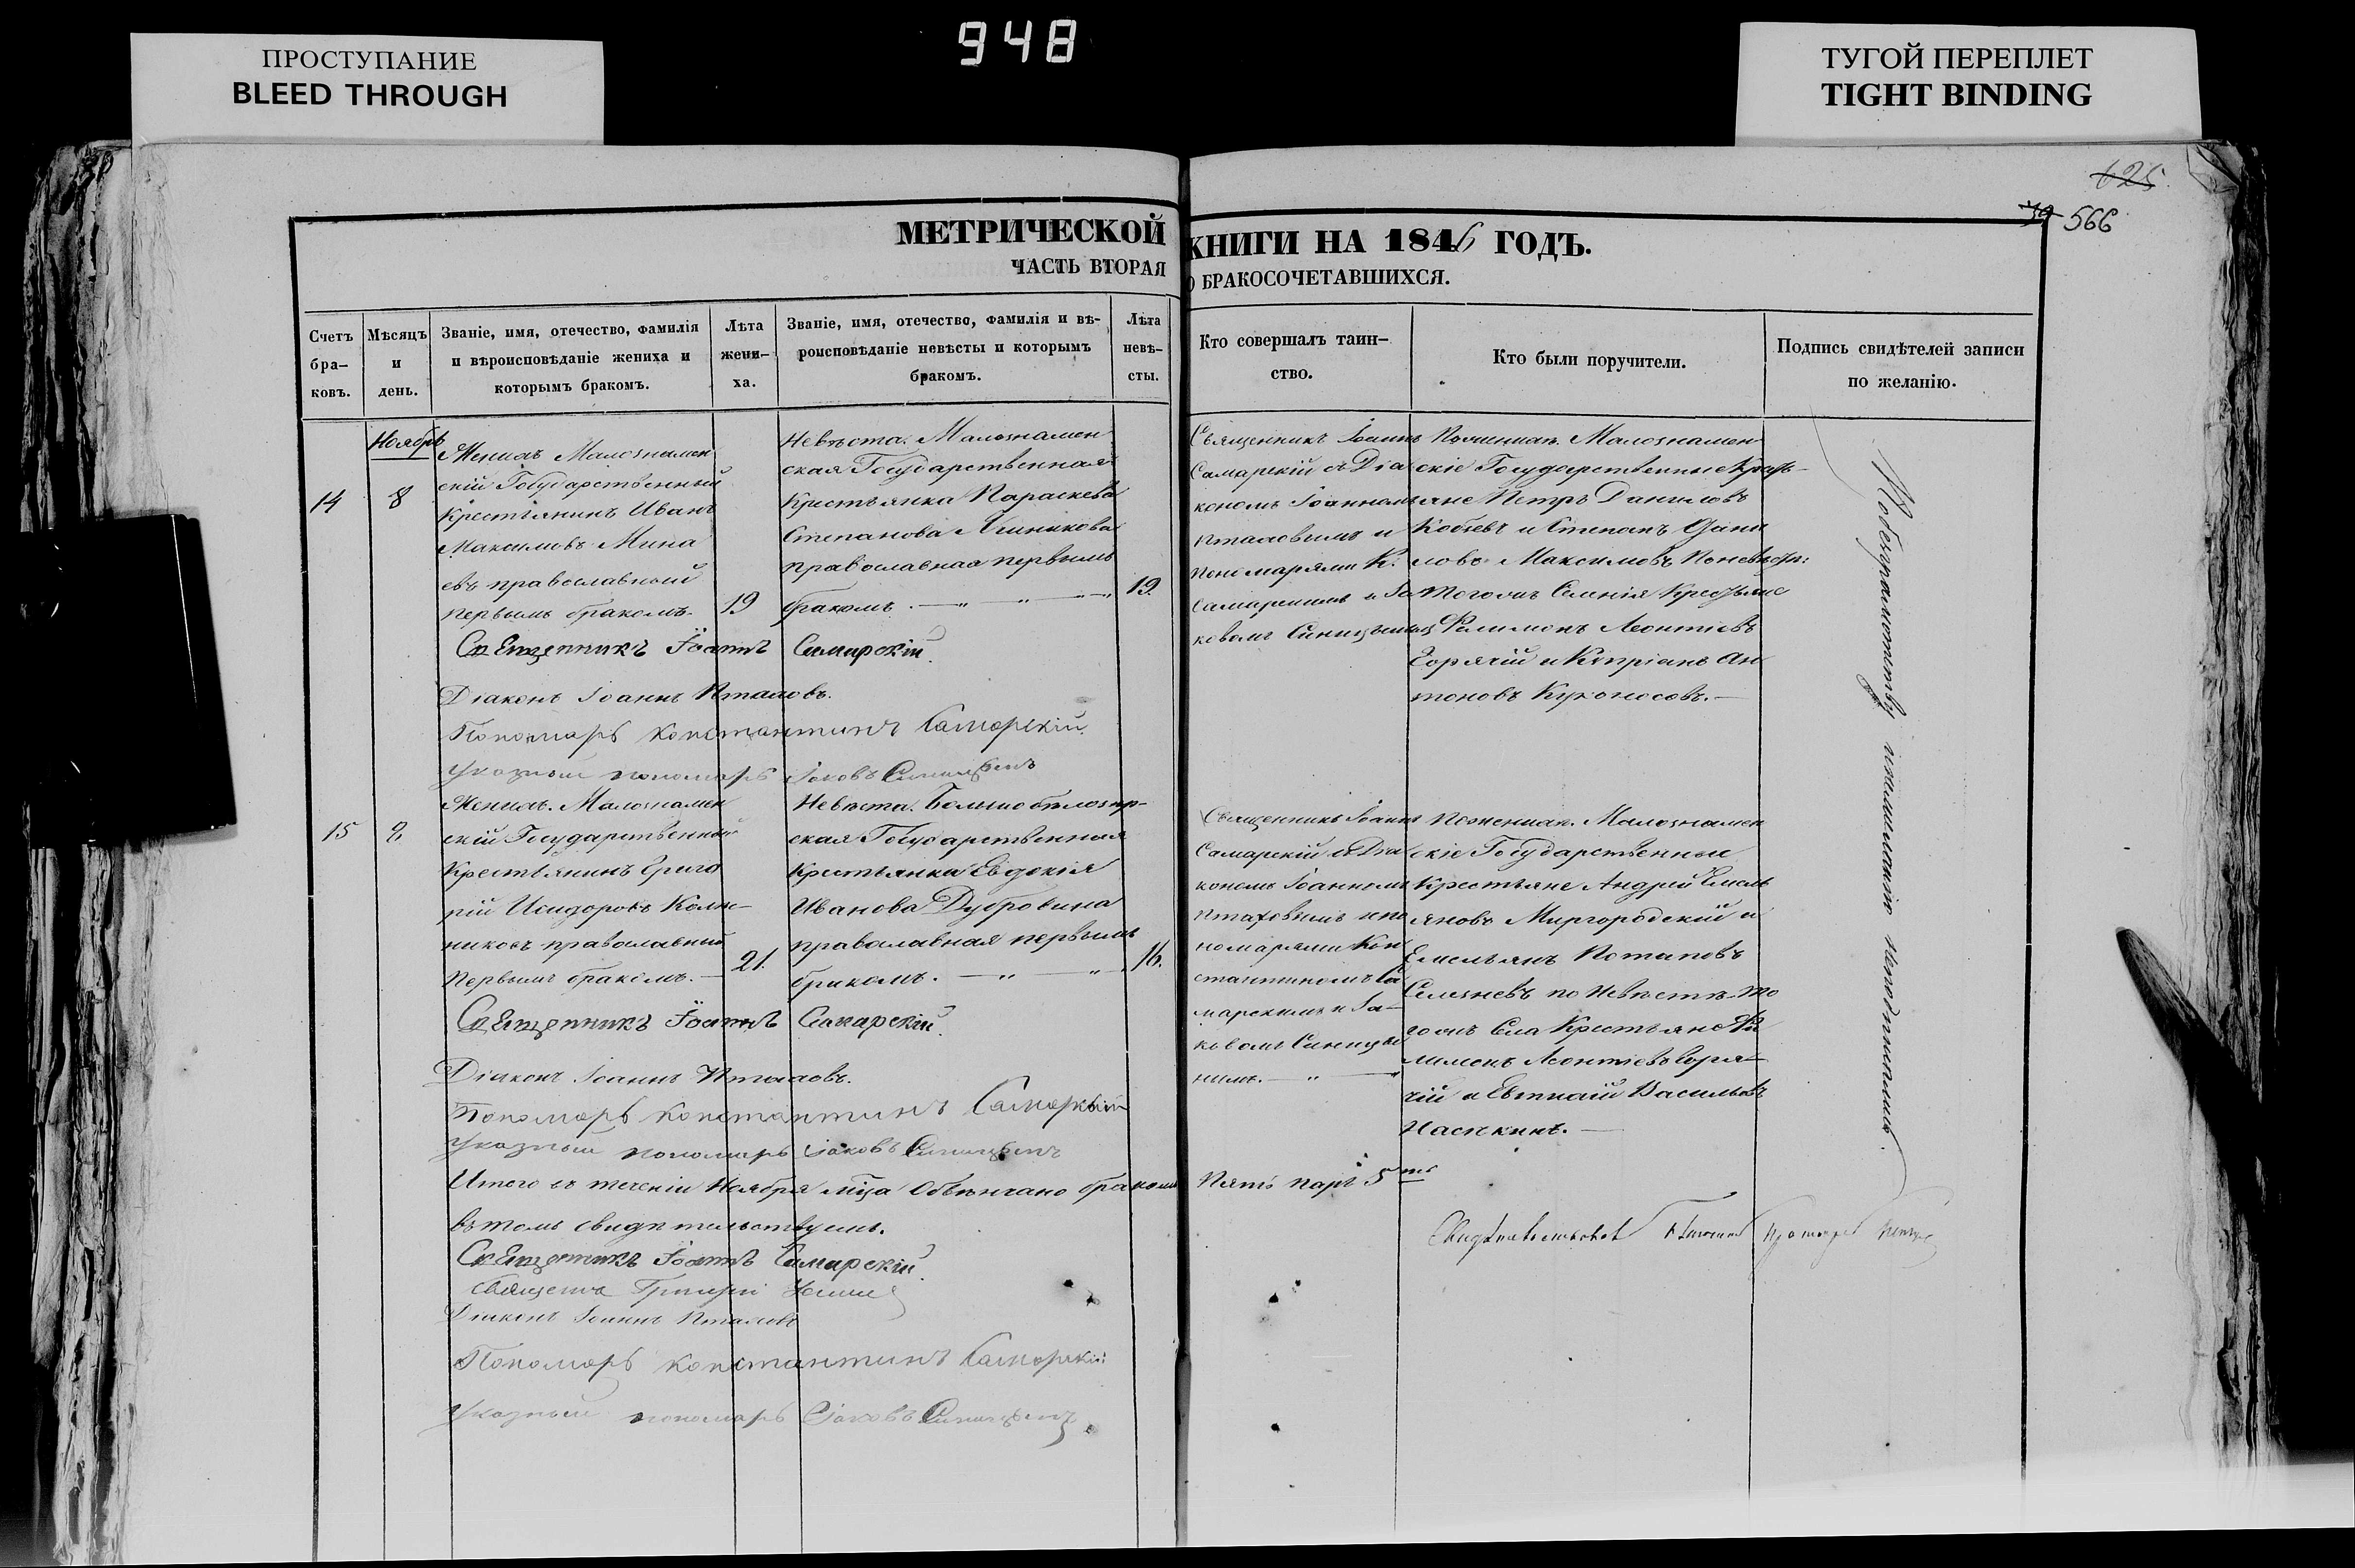 948
ПРОСТУПАНИЕ
BLEED THROUGH
ТУГОЙ ПЕРЕПЛЕТ
TIGHT BINDING
625
566
МЕТРИЧЕСКОЙ КНИГИ НА 1846 ГОДЪ.
ЧАСТЬ ВТОРАЯ О БРАКОСОЧЕТАВШИХСЯ.
Счетъ
бра-
ковъ.
Мѣсяцъ
и
день.
Званіе, имя, отечество, фамилія
и вѣроисповѣданіе жениха и
которымъ бракомъ.
Лѣта
жени-
ха.
Званіе, имя, отечество, фамилія и вѣ-
роисповѣданіе невѣсты и которымъ
бракомъ.
Лѣта
невѣ-
сты.
Кто совершалъ таин-
ство.
Кто были поручители.
Подпись свидѣтелей записи
по желанію.
Ноябрь
14
8
Женихъ Малознамен
скій Государственный
Крестьянинъ Иванъ
Максимовъ Мина
евъ православный
первымъ бракомъ.
19
Невѣста. Малознамен
ская Государственная
Крестьянка Параскева
Степанова
православная первымъ
бракомъ.
19.
Священникъ Іоаннъ
Самарскій съ Діа
кономъ Іоанномъ
Пталовымъ и
пономарями К.
Самарскимъ и Іа
ковомъ Синицынымъ
По женихѣ. Малознамен
скіе Государственные Кресть-
яне Петръ Даниловъ
Кобзевъ и Степанъ
Максимовъ По невѣстѣ:
Тогожъ Селенія Крестьяне
Филимонъ Леонтіевъ
Горячій и Кипріанъ Ан
тоновъ Кухоносовъ.
Священникъ Іоаннъ Самарскій
Діаконъ Іоаннъ Пталовъ.
Пономарь Константинъ Самарскій
Указный пономарь Іаковъ Синицынъ
15
2
Женихъ. Малознамен
скій Государственный
Крестьянинъ Григо
рій Исидоровъ Колес-
никовъ православный
первымъ бракомъ.
21.
Невѣста. Больше бѣлозер-
ская Государственная
Крестьянка Евдокія
Иванова Дубровина
православная первымъ
бракомъ.
16.
Священникъ Іоаннъ
Самарскій съ Діа
кономъ Іоанномъ
Пталовымъ и по
номарями Кон
стантиномъ Са
марскимъ и Іа-
ковомъ Синицы
нымъ.
По женихѣ. Малознамен
скіе Государственные
Крестьяне Андрей Емель
яновъ Миргородскій и
Емельянъ Потаповъ
Селезневъ по Невѣстѣ. То
гожъ Села Крестьяне Фи
лимонъ Леонтіевъ Горя-
чій и Евтихій Васильевъ
Пасѣкинъ.
Священникъ Іоаннъ Самарскій
Діаконъ Іоаннъ Пталовъ.
Пономарь Константинъ Самарскій
Указный пономарь Іаковъ Синицынъ
Итого въ теченіи Ноября мѣца Обвѣнчано бракомъ Пять паръ 5ть
въ томъ свидѣтельствуемъ.
Священникъ Іоаннъ Самарскій
Священникъ Григорій
Діаконъ Іоаннъ Пталовъ
Пономарь Константинъ Самарскій
Указный пономарь Іаковъ Синицынъ
Свидѣтельствовалъ